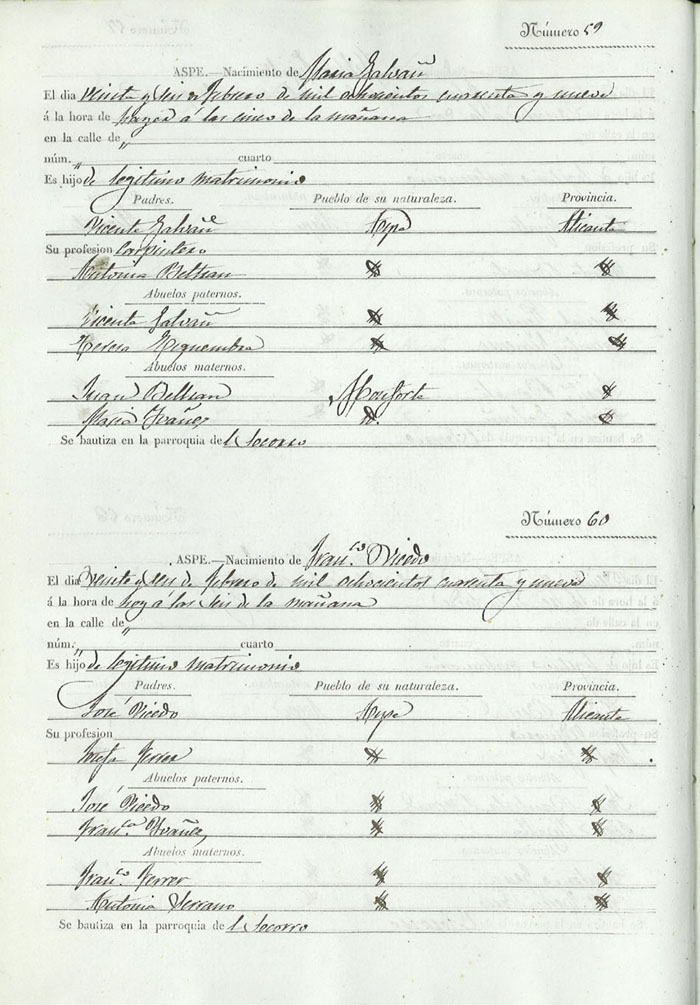 Número 59
ASPE.—Nacimiento de Maria Galvañ
El dia veinte y seis de febrero de mil ochocientos cuarenta y nueve
á la hora de hoy á las cinco de la mañana
en la calle de „
núm. „ cuarto
Es hijo de legitimo matrimonio
Padres. Pueblo de su naturaleza. Provincia.
Vicente Galvañ Aspe Alicante
Su profesion Carpintero
Antonia Beltran
Abuelos paternos.
Vicente Galvañ
Teresa
Abuelos maternos.
Juan Beltran Monforte
Maria Ybañez
Se bautiza en la parroquia del Socorro
Número 60
ASPE.—Nacimiento de Fran.co Vicedo
El dia veinte y seis de febrero de mil ochocientos cuarenta y nueve
á la hora de hoy á las seis de la mañana
en la calle de „
núm. „ cuarto
Es hijo de legitimo matrimonio
Padres. Pueblo de su naturaleza. Provincia.
José Vicedo Aspe Alicante
Su profesion
Josefa Ferrer
Abuelos paternos.
José Vicedo
Fran.ca Ybañez
Abuelos maternos.
Fran.co Ferrer
Antonia Serrano
Se bautiza en la parroquia del Socorro